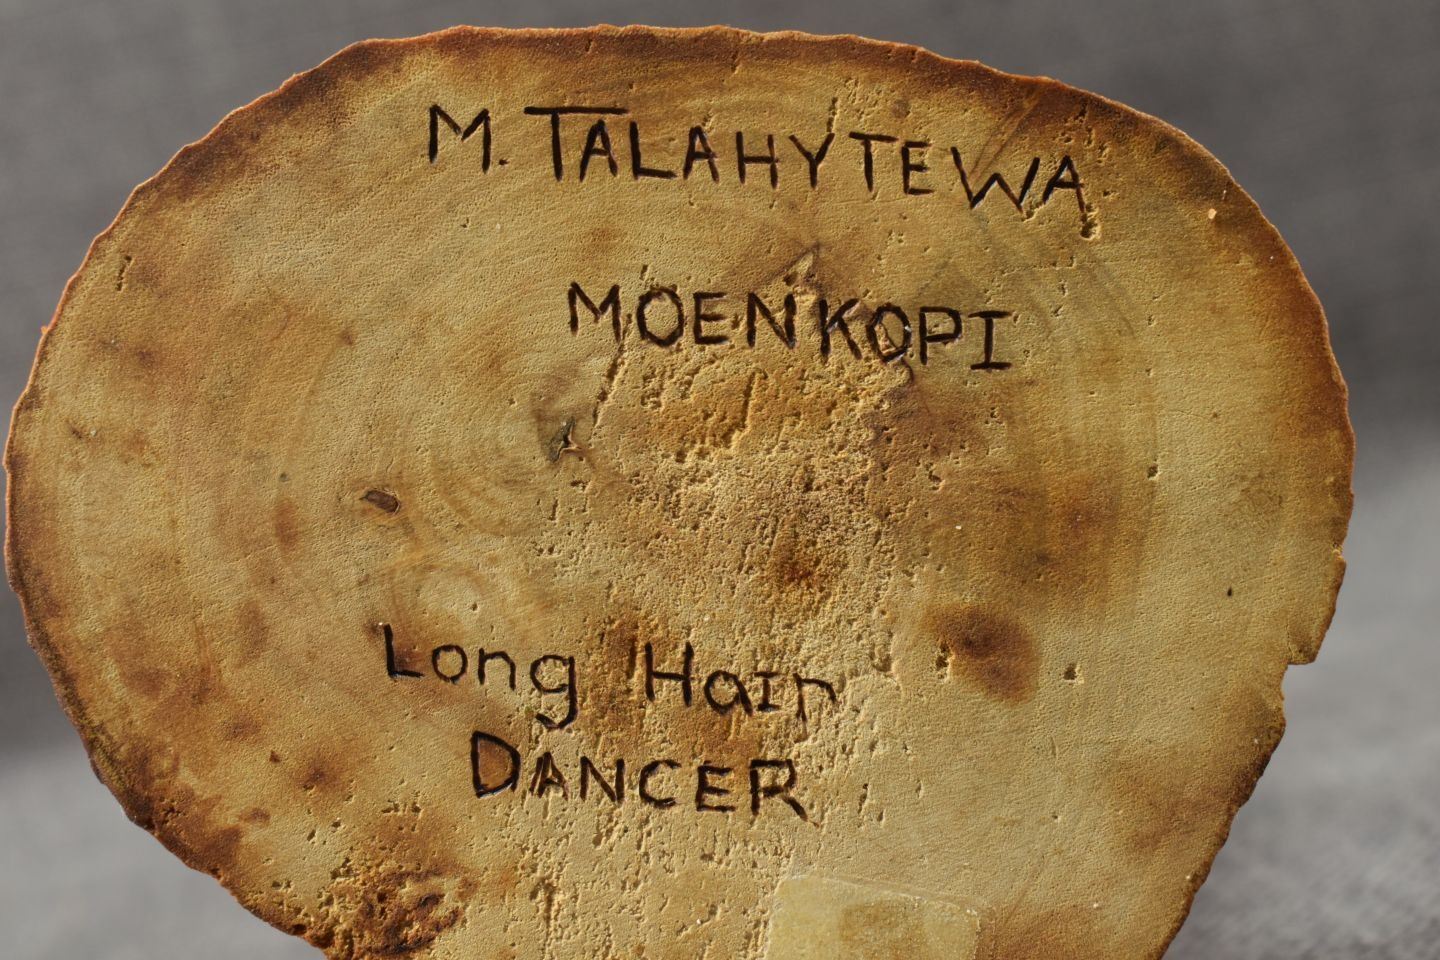 M. TALAHYTEWA
MOENKOPI
Long Hair
DANCER